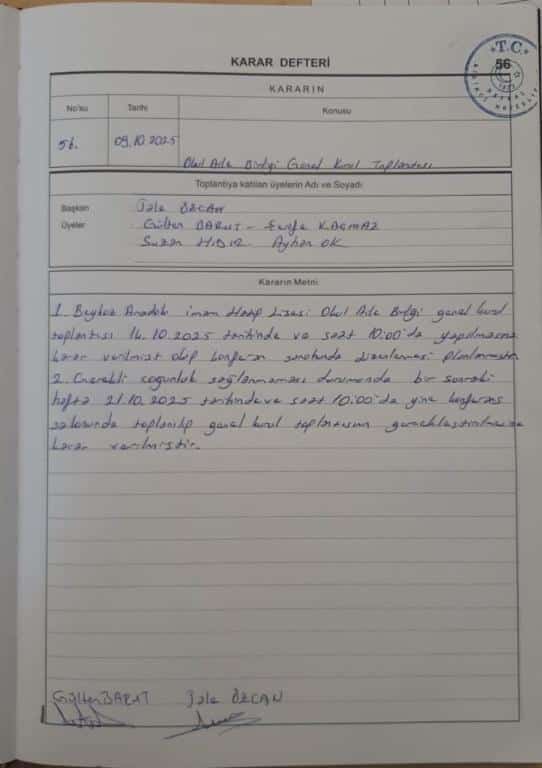 T.C.
KARAR DEFTERİ
56
KARARIN
No'su Tarihi Konusu
56. 09.10.2025 Okul Aile Birliği Genel Kurul Toplantısı
Toplantıya katılan üyelerin Adı ve Soyadı
Başkan Jale ÖZCAN
Üyeler Gülten BARUT - KAÇMAZ
Suzan HIDIR Ayhan OK
Kararın Metni
1. Beykoz Anadolu imam Hatip Lisesi Okul Aile Birliği genel kurul
toplantısı 14.10.2025 tarihinde ve saat 10:00'da yapılmasına
karar verilmiş olup konferans planlanmıştır
2. Gerekli çoğunluk sağlanmaması durumunda bir sonraki
hafta 21.10.2025 tarihinde ve saat 10:00'da yine konferans
salonunda toplanılıp genel kurul toplantısının gerçekleştirilmesine
karar verilmiştir.
Gülten BARUT Jale ÖZCAN